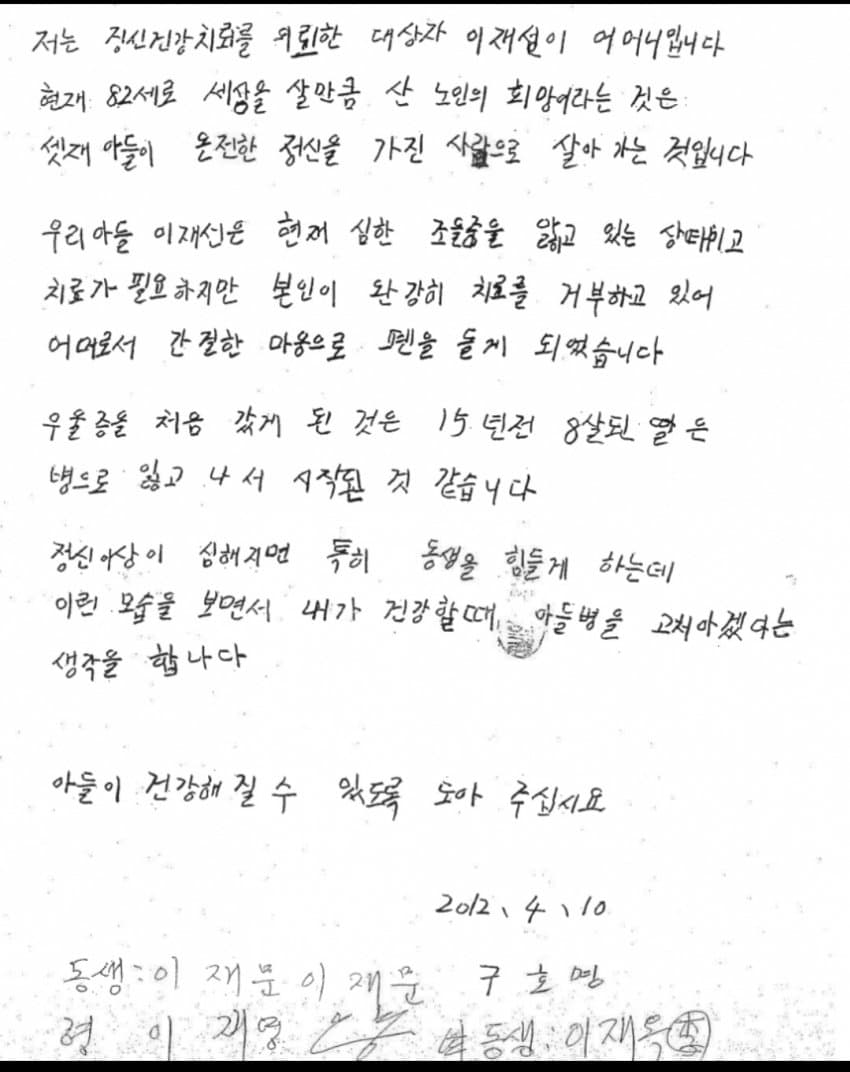 저는 정신건강치료를 의뢰한 대상자 이재선이 어머니입니다
현재 82세로 세상을 살만큼 산 노인의 희망이라는 것은
셋재 아들이 온전한 정신을 가진 사람으로 살아 가는 것입니다
우리아들 이재선은 현재 심한 조울증을 앓고 있는 상태이고
치료가 필요하지만 본인이 완강히 치료를 거부하고 있어
어머로서 간절한 마음으로 펜을 들게 되었습니다
우울증을 처음 갔게 된 것은 15년전 8살된 딸은
병으로 잃고 나서 시작된 것 같습니다
정신이상이 심해지면 특히 동생을 힘들게 하는데
이런 모습을 보면서 내가 건강할때, 아들병을 고쳐야겠다는
생각을 합니다
아들이 건강해질 수 있도록 도아 주십시요
2012、4、10
동생:이 재문 이 재문 구호명
형 이 재명 女동생:이재옥